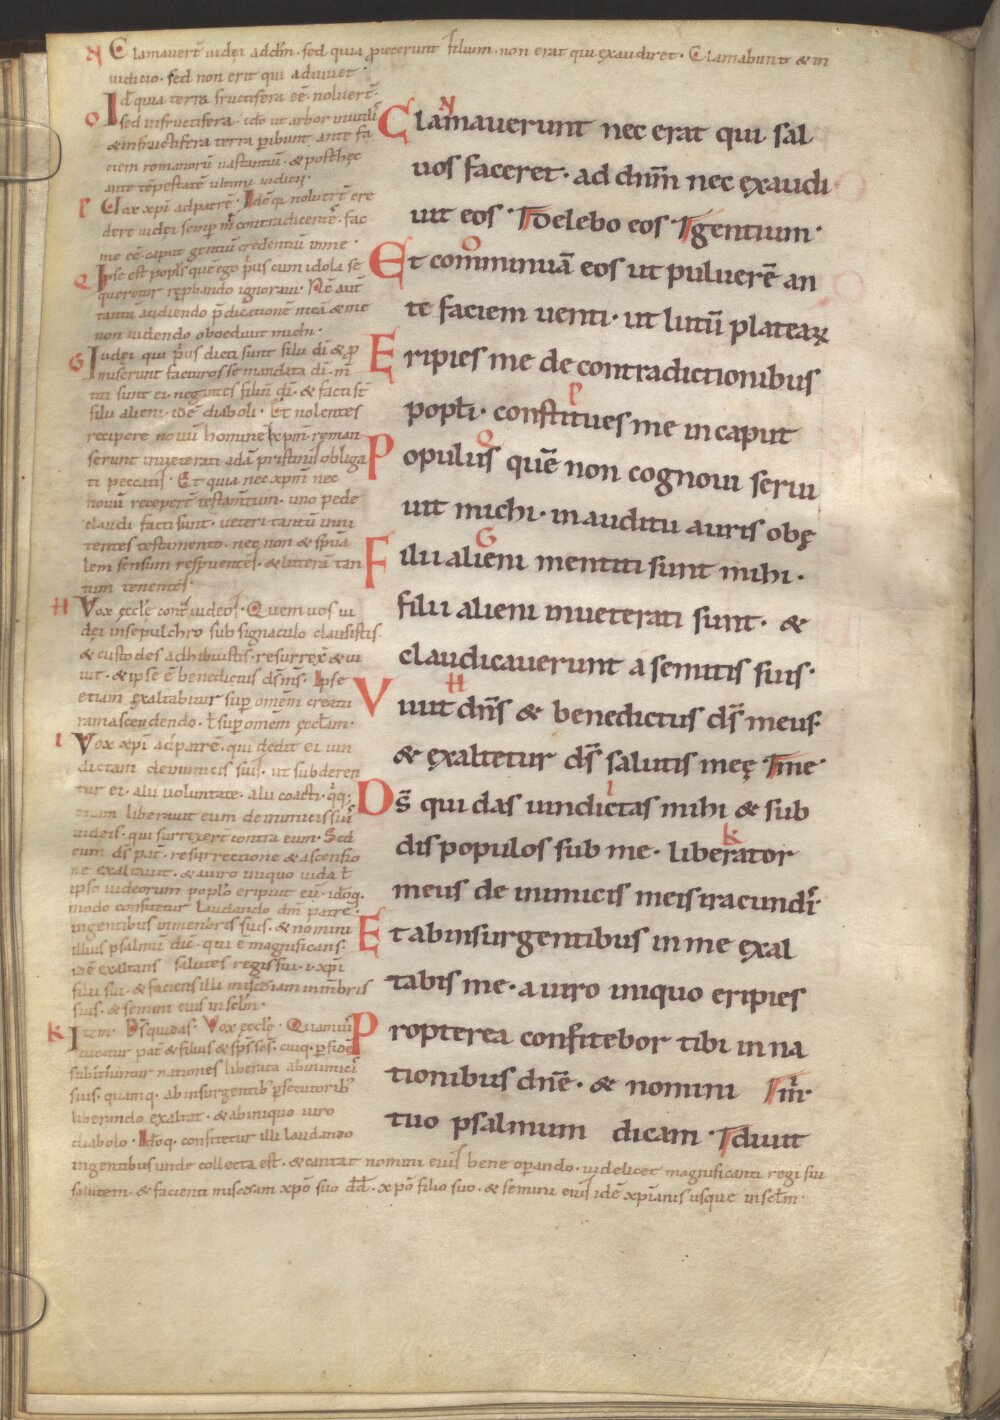 N Clamauerт̄ iudei ad dn̄m · sed quia proiecerunt filium · non erat qui exaudiret · Clamabunt & in
iudicio · sed non erit qui adiuuet ·
O Id quia terra fructifera eē noluert̄ ·
sed infructifera · ideo ut arbor inutilis
& infructifera terra peribunt ante fa
ciem romanorū uastantiū · & post hęc
ante tēpestatē ultimi iudicii ·
P Uox xp̄i ad patrē · Idē q̄ noluert̄ cre
dere iudei semp m̄ contradicentes · fac
me eē caput gentiū credentiū in me ·
Q Ipse est popl̄s quē ego p̄us cum idola se
queretur rep̄bando ignoraui · Nē aut
tantū audiendo p̄dicationē meā & me
non uidendo oboediuit michi ·
G Iudei qui p̄us dicti sunt filii dī & p
miserunt facturos se mandata dī · m̄
titi sunt ei · negantes filiū dī · & facti st̄
filii alieni · idē diaboli · Et nolentes
recipere nouū hominē xp̄m · reman
serunt inueterati adā pristinis obliga
ti peccatis · Et quia nec xp̄m nec
nouū recepert̄ testam̄tum · uno pede
claudi facti sunt · ueteri tantū inni
tentes testamento · nec non & sp̄ua
lem sensum respuentes · & litterā tan
tum tenentes ·
H Vox ęccl̄ę cont̄ iudeos · Quem uos iu
dei in sepulchro sub signaculo clausistis
& custodes adhibuistis · resurrex̄ & ui
uit · & ipse ē benedictus ds̄ ms̄ · Ipse
etiam exaltabitur sup omem̄ creatu
ram ascendendo · l̄ sup omem̄ ęccl̄am ·
I Vox xp̄i ad patrē · qui dedit ei uin
dictam de inimicis suis · ut subderen
tur ei · alii uoluntate · alii coacti · q̄q;
etiam liberauit eum de inimicis suis
iudeis · qui surrexert̄ contra eum · Sed
eum ds̄ pat̄ · resurrectione & ascensio
ne exaltauit · & a uiro iniquo iuda l̄
ipso iudeorum popl̄o eripuit eū · idoq̨
modo confitetur laudando dn̄m patrē ·
in gentibus in menbris suis · & nomini
illius psalmū dic̄ · qui ē magnificans ·
idē exaltans salutes regis sui · i · xp̄i
filii sui · & faciens illi mis̄cdiam in mn̄bris
suis · & semini eius in sc̄lm̄ ·
K Item · Ds̄ qui das · Vox ęccl̄ę · Quamuis
dicatur pat̄ & filius & sp̄s sc̄s · cuiq̨ p fidē
subduntur nationes liberata ab inimicis
suis · quinq̨ · ab insurgentib; psecutorib;
liberando exaltat · & ab iniquo uiro
diabolo · Idoq̨ · confitetur illi laudando
in gentibus unde collecta est · & cantat nomini eius bene operando · uidelicet magnificanti regi suo
salutem · & facienti mis̄cdiam xp̄o suo dd̄ · xp̄o filio suo · & semini eius idē xp̄ianis usque in sc̄lm̄ ·
N
Clamauerunt nec erat qui sal
uos faceret · ad dn̄m nec exaudi
uit eos · T Delebo eos · T gentium ·
O
Et comminuā eos ut puluerē an
te faciem uenti · ut lutū plateaꝝ
Eripies me de contradictionibus
P
popl̄i · constitues me in caput
Q
Populus quē non cognoui serui
uit michi · in auditu auris obę
G
Filii alieni mentiti sunt mihi ·
filii alieni inueterati sunt · &
claudicauerunt a semitis suis ·
H
Viuit dn̄s & benedictus ds̄ meus ·
& exaltetur ds̄ salutis meę T me ·
I
Ds̄ qui das uindictas mihi & sub
K
dis populos sub me · liberator
meus de inimicis meis iracundis ·
Et ab insurgentibus in me exal
tabis me · a uiro iniquo eripies
Propterea confitebor tibi in na
tionibus dn̄e · & nomini T m̄ ·
tuo psalmum dicam · T diuit